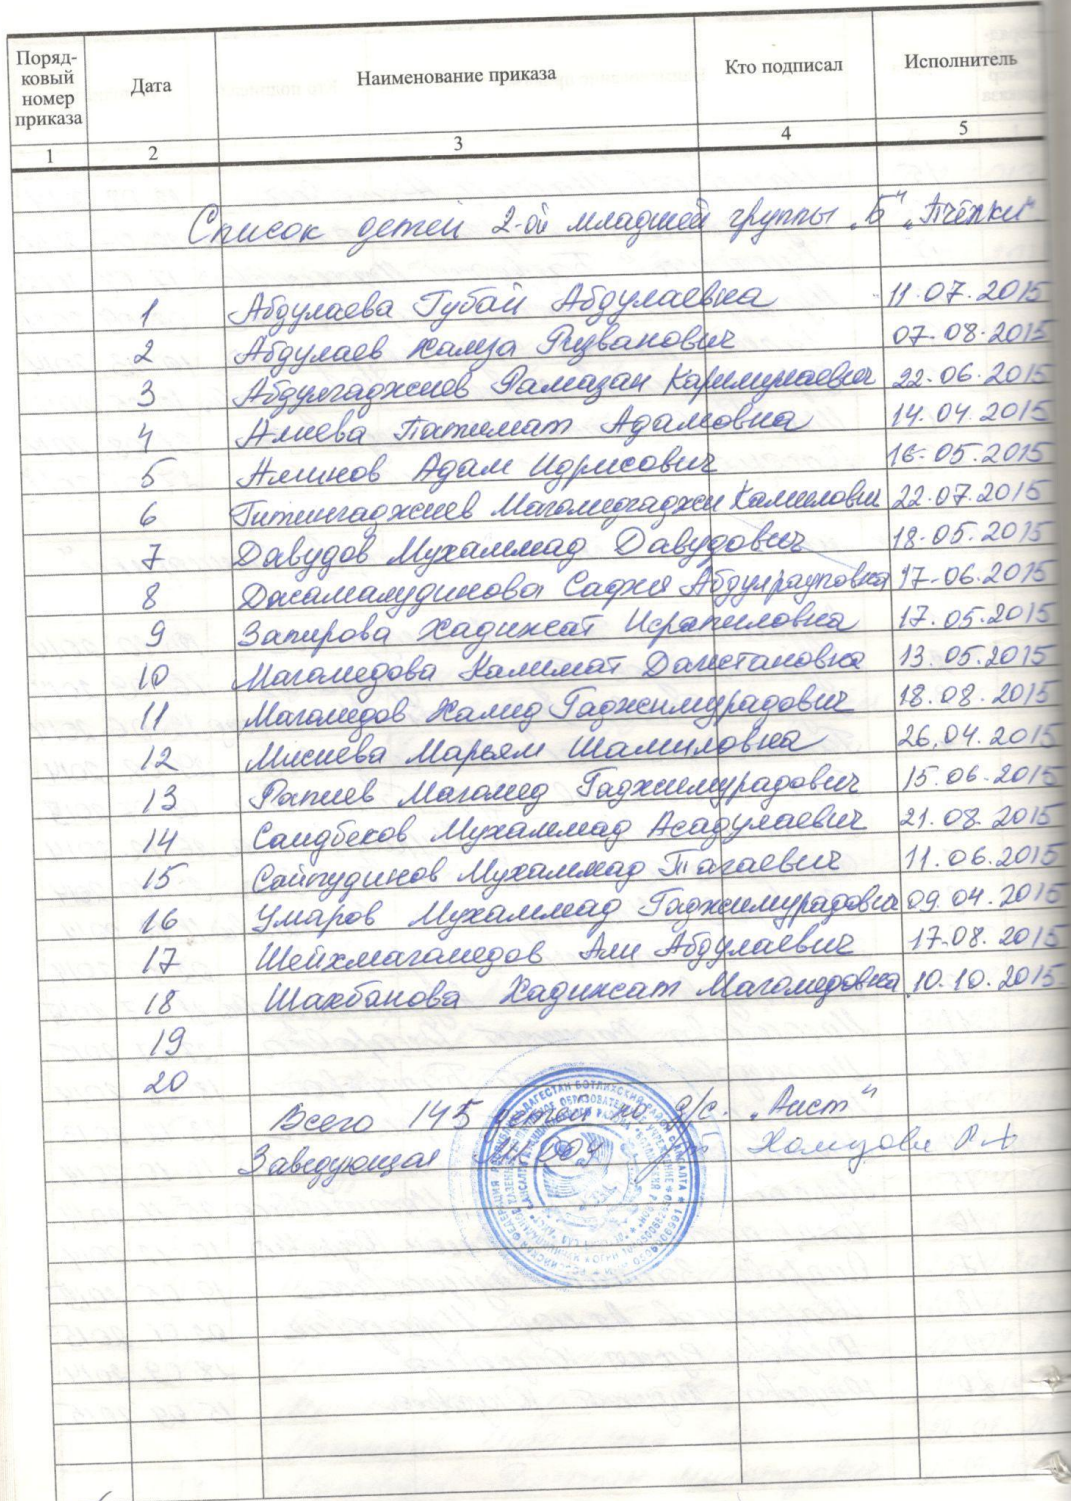 Поряд-
ковый
номер
приказа
Дата
Наименование приказа
Кто подписал
Исполнитель
1 2 3 4 5
Список детей 2-ой младшей группы „Б" „Пчёлки"
1 Абдулаева Губай Абдулаевна 11.07.2015
2 Абдулаев Хамза Ризванович 07.08.2015
3 Абдулгаджиев Рамазан Каримулаевич 22.06.2015
4 Алиева Патимат Адамовна 14.04.2015
5 Алинов Адам Идрисович 16.05.2015
6 Гитингаджиев Магомедгаджи Камилович 22.07.2015
7 Давудов Мухаммад Давудович 18.05.2015
8 Джамалудинова Сафия Абдулрауповна 17.06.2015
9 Запирова Хадижат Исрапиловна 17.05.2015
10 Магомедова Калимат Дагистановна 13.05.2015
11 Магомедов Халид Гаджимурадович 18.08.2015
12 Мисиева Марьям Шамиловна 26.04.2015
13 Рапиев Магомед Гаджимурадович 15.06.2015
14 Саидбеков Мухаммад Асадулаевич 21.08.2015
15 Сайпудинов Мухаммад Тагаевич 11.06.2015
16 Умаров Мухаммад Гаджимурадович 09.04.2015
17 Шейхмагомедов Али Абдулаевич 17.08.2015
18 Шахбанова Хадижат Магомедовна 10.10.2015
19
20
Всего 145 детей по д/с. „Аист"
Заведующая Хамзова Р А